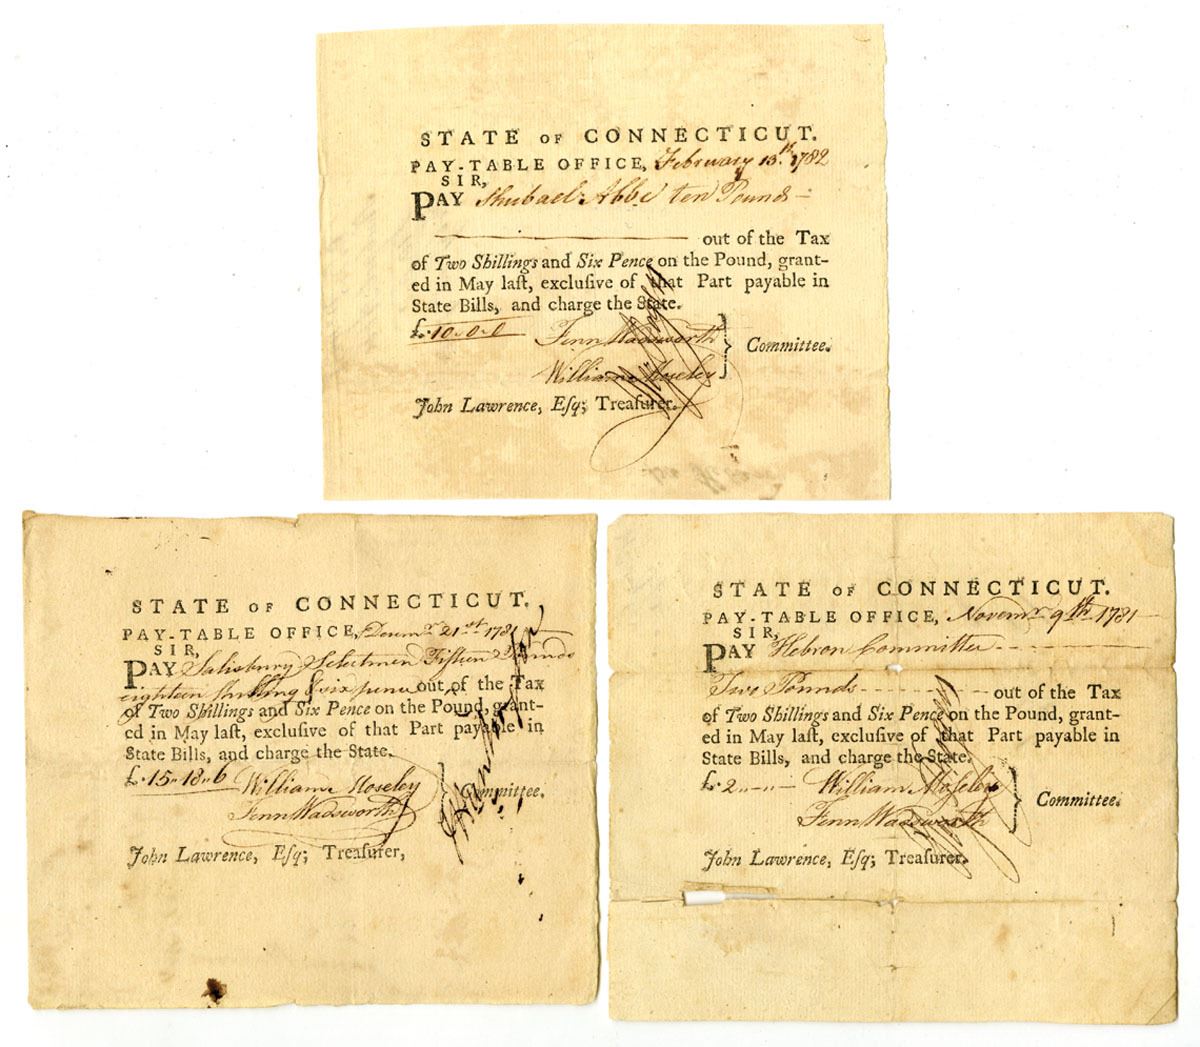 STATE OF CONNECTICUT.
PAY-TABLE OFFICE, February 13th. 1782
SIR,
PAY Shubael Abbe ten Pounds —
out of the Tax
of Two Shillings and Six Pence on the Pound, grant-
ed in May laſt, excluſive of that Part payable in
State Bills, and charge the State.
£.10.0.0 Fenn Wadsworth
William Moseley } Committee.
John Lawrence, Eſq; Treaſurer.
STATE OF CONNECTICUT.
PAY-TABLE OFFICE, Decemr. 21st. 1781
SIR,
PAY Salisbury Selectmen Fifteen Pounds
eighteen shilling & six pence out of the Tax
of Two Shillings and Six Pence on the Pound, grant-
ed in May laſt, excluſive of that Part payable in
State Bills, and charge the State.
£.15..18..6 William Moseley
Fenn Wadsworth } Committee.
John Lawrence, Eſq; Treaſurer,
STATE OF CONNECTICUT.
PAY-TABLE OFFICE, Novemr. 9th. 1781
SIR,
PAY Hebron Committee
Two Pounds out of the Tax
of Two Shillings and Six Pence on the Pound, grant-
ed in May laſt, excluſive of that Part payable in
State Bills, and charge the State.
£.2..–..– William Moseley
Fenn Wadsworth } Committee.
John Lawrence, Eſq; Treaſurer.